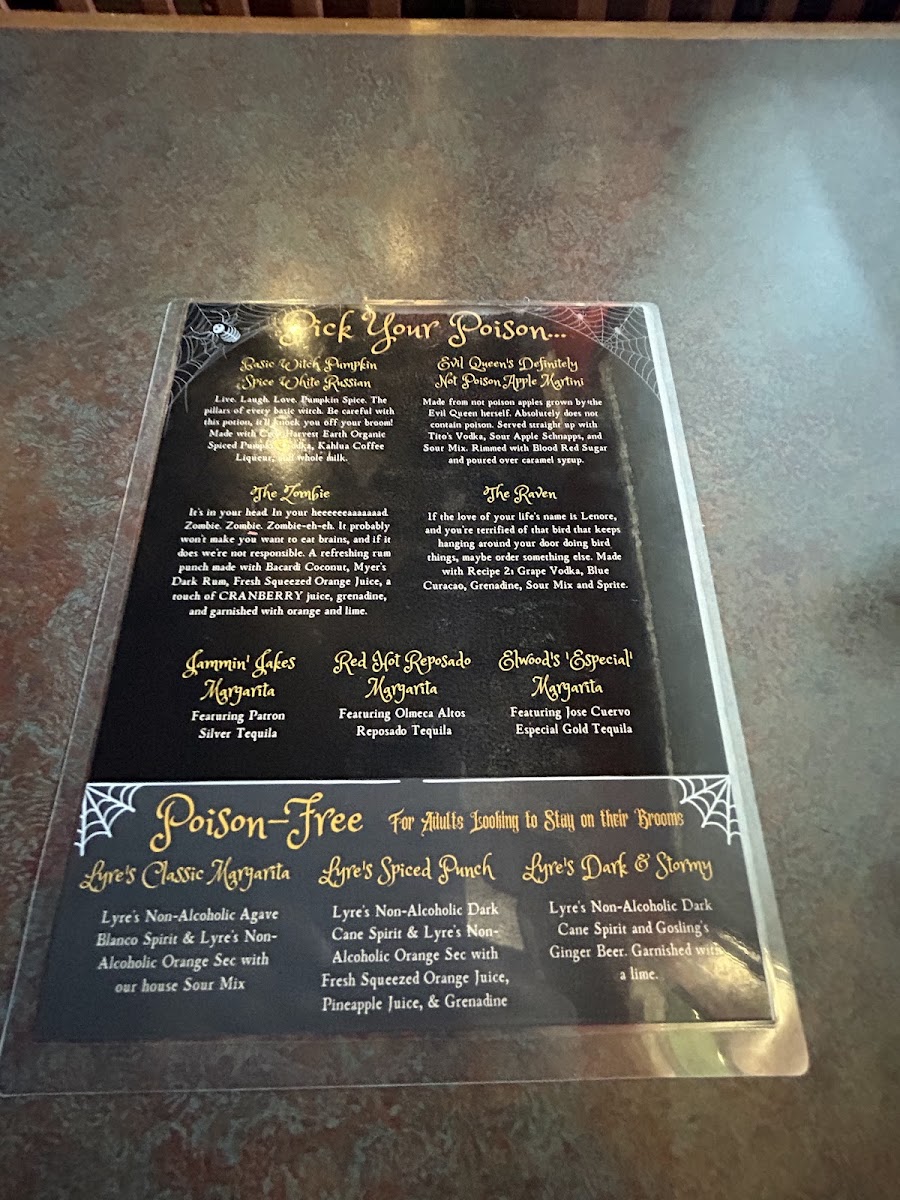 Pick Your Poison...
Basic Witch Pumpkin
Spice White Russian
Live. Laugh. Love. Pumpkin Spice. The
pillars of every basic witch. Be careful with
this potion, it'll knock you off your broom!
Made with Crop Harvest Earth Organic
Spiced Pumpkin Vodka, Kahlua Coffee
Liqueur, and whole milk.
Evil Queen's Definitely
Not Poison Apple Martini
Made from not poison apples grown by the
Evil Queen herself. Absolutely does not
contain poison. Served straight up with
Tito's Vodka, Sour Apple Schnapps, and
Sour Mix. Rimmed with Blood Red Sugar
and poured over caramel syrup.
The Zombie
It's in your head In your heeeeeeaaaaaad.
Zombie. Zombie. Zombie-eh-eh. It probably
won't make you want to eat brains, and if it
does we're not responsible. A refreshing rum
punch made with Bacardi Coconut, Myer's
Dark Rum, Fresh Squeezed Orange Juice, a
touch of CRANBERRY juice, grenadine,
and garnished with orange and lime.
The Raven
If the love of your life's name is Lenore,
and you're terrified of that bird that keeps
hanging around your door doing bird
things, maybe order something else. Made
with Recipe 21 Grape Vodka, Blue
Curacao, Grenadine, Sour Mix and Sprite.
Jammin' Jakes
Margarita
Featuring Patron
Silver Tequila
Red Hot Reposado
Margarita
Featuring Olmeca Altos
Reposado Tequila
Elwood's 'Especial'
Margarita
Featuring Jose Cuervo
Especial Gold Tequila
Poison-Free For Adults Looking to Stay on their Brooms
Lyre's Classic Margarita
Lyre's Non-Alcoholic Agave
Blanco Spirit & Lyre's Non-
Alcoholic Orange Sec with
our house Sour Mix
Lyre's Spiced Punch
Lyre's Non-Alcoholic Dark
Cane Spirit & Lyre's Non-
Alcoholic Orange Sec with
Fresh Squeezed Orange Juice,
Pineapple Juice, & Grenadine
Lyre's Dark & Stormy
Lyre's Non-Alcoholic Dark
Cane Spirit and Gosling's
Ginger Beer. Garnished with
a lime.